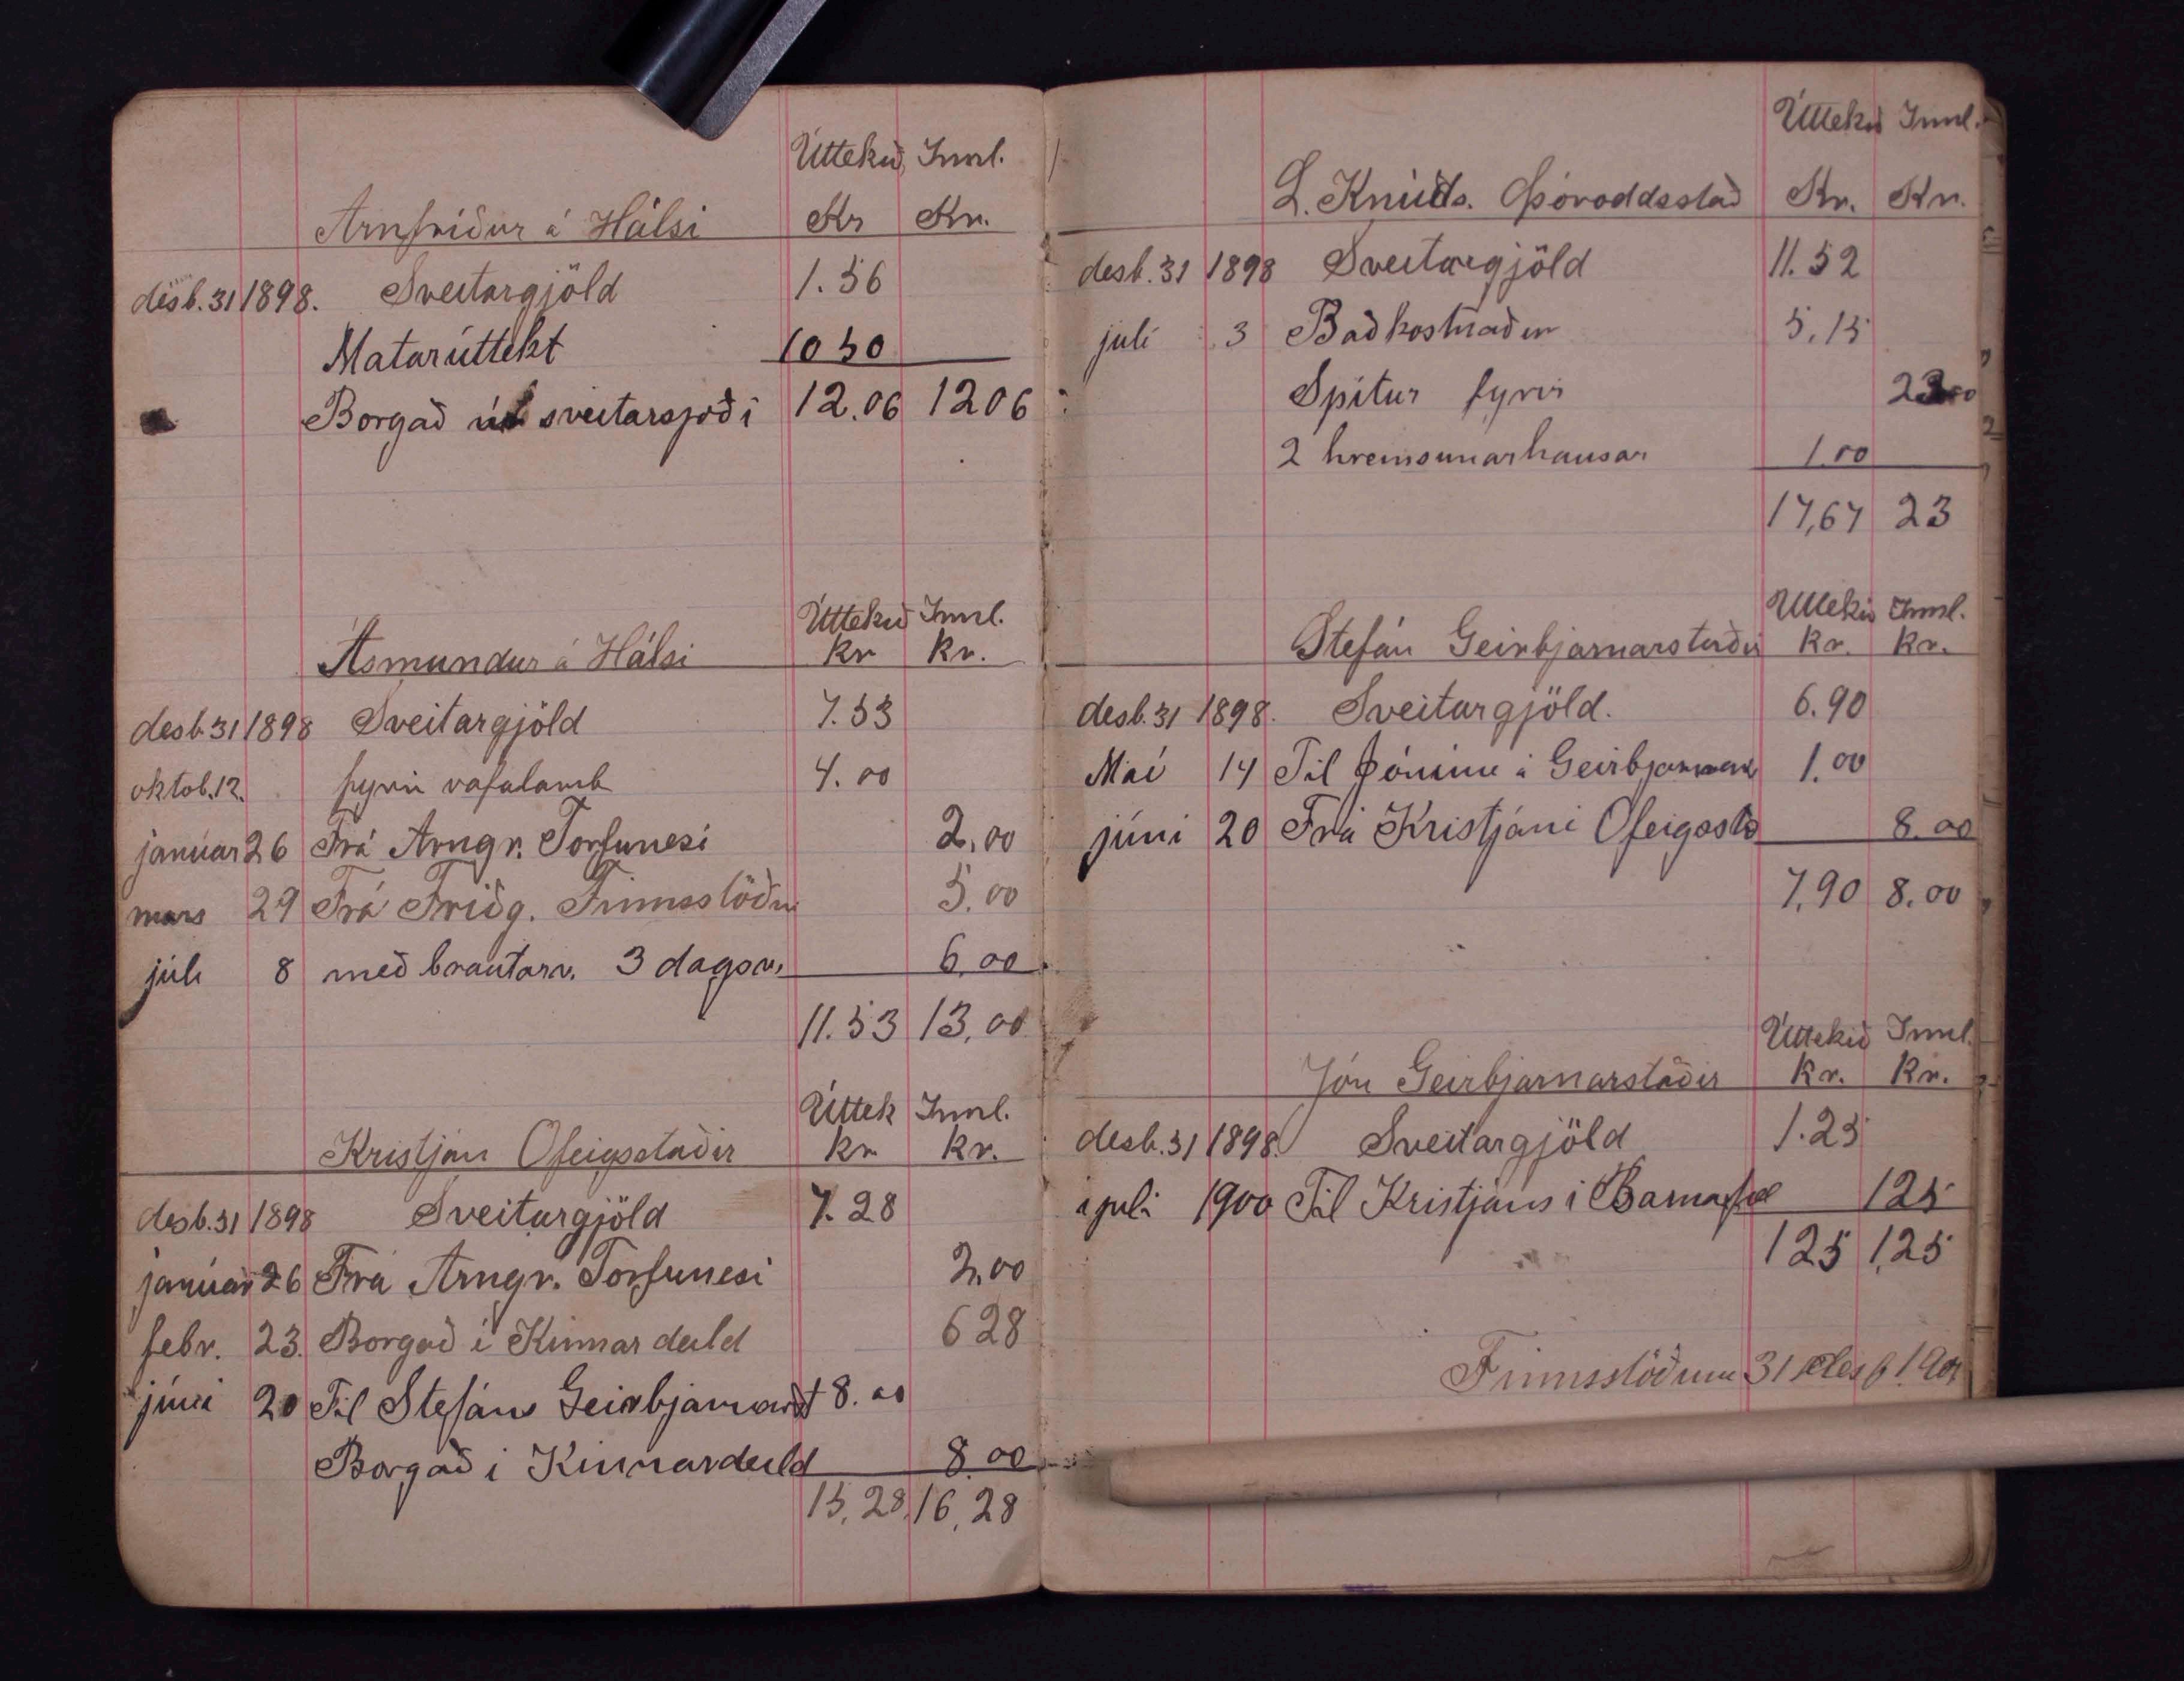 Úttekið Innl.
Arnfríður á Hálsi Kr Kr.
desb. 31 1898. Sveitargjöld 1.56
Matarúttekt 10 50
Borgað úr sveitarsjóði 12.06 12 06
Úttekið Innl.
Ásmundur á Hálsi kr kr.
desb. 31 1898 Sveitargjöld 7.53
oktob. 12. fyrir vafalamb 4.00
januar 26 Frá Arngr. Torfunesi 2,00
mars 29 Frá Friðg. Finnsstöðu 5.00
júli 8 með brautarv. 3 dagsv. 6,00
11.53 13,00
Úttek Innl.
Kristján Ofeigsstaðir kr kr.
desb. 31 1898 Sveitargjöld 7.28
januar 26 Frá Arngr. Torfunesi 2.00
febr. 23. Borgað i Kinnardeild 6 28
júni 20 Til Stefáns Geirbjarnarst 8.00
Borgað i Kinnardeild 8.00
15,28 16,28
Úttekið Innl.
L. Knúds. Þóroddsstað Kr. Kr.
desb. 31 1898 Sveitargjöld 11.52
juli 3 Baðkostnaður 5,15
Spitur fyrir
2 hreinsunarhausar 1.00
17,67 23
Úttekið Innl.
Stefán Geirbjarnarstaðir kr. kr.
desb. 31 1898. Sveitargjöld. 6.90
Mai 14 Til Jóninu á 1.00
júni 20 Frá Kristjáni Ofeigsst 8.00
7,90 8.00
Úttekið Innl.
Jón Geirbjarnarstaðir kr. kr.
desb. 31 1898. Sveitargjöld 1.25
i juli 1900 Til Kristjáns i 125
125 1,25
Finnsstöðum 31 desb